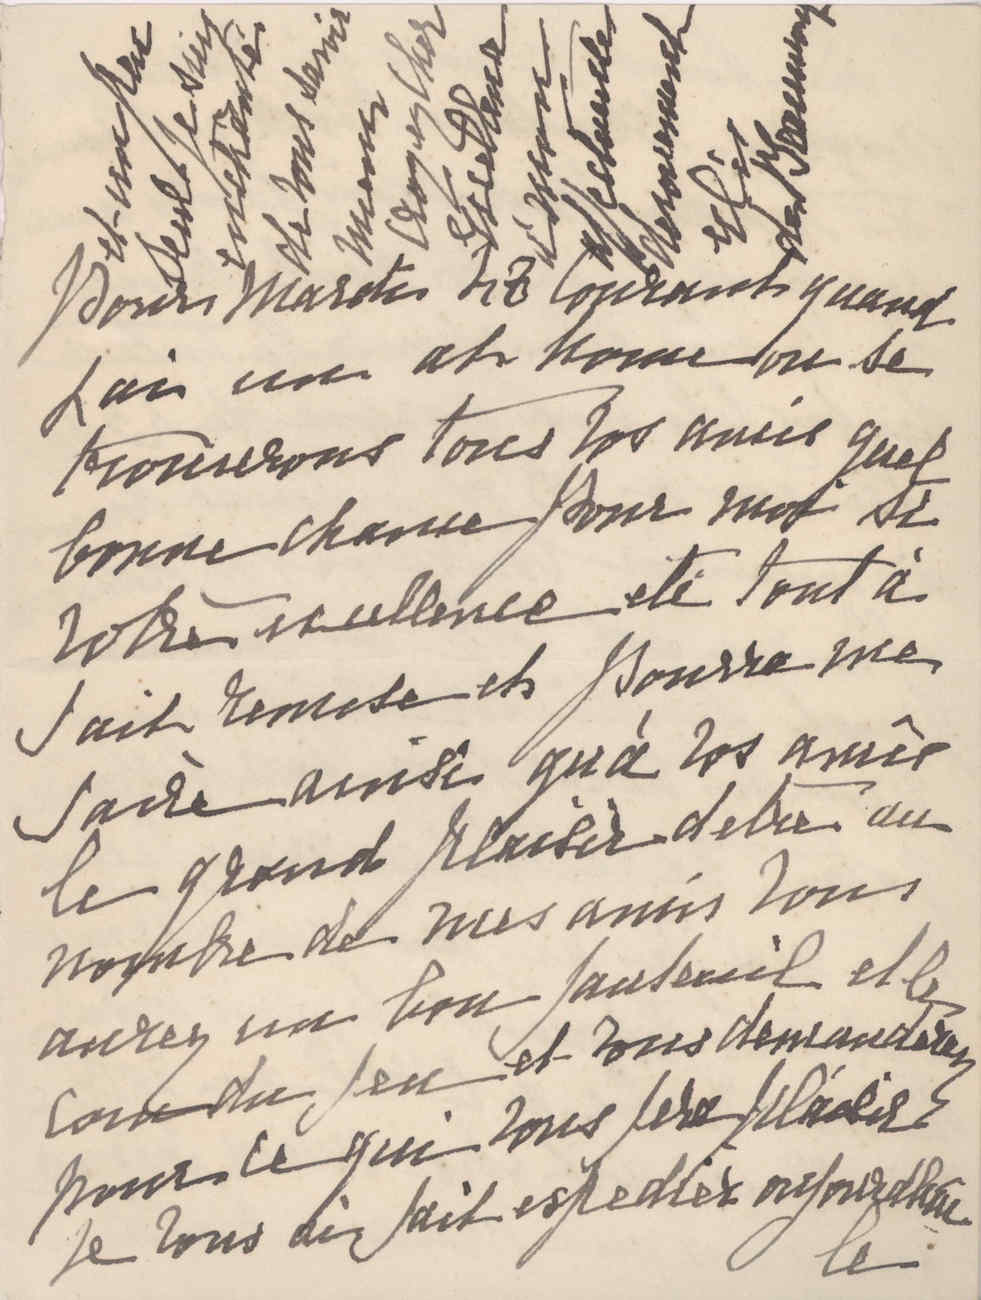 Pour Mardi 28 Courant quand
j ai un at home ou se
trouverons tous vos amis quel
bonne chance pour moi si
votre excellence etè tout à
fait remise et pourra me
faire ainsi qu'à vos amis
le grand plaisir detre au
nombre de mes amis vous
aurez un bon fauteuil et le
coin du feu et vous demanderez
pour ce qui vous fera plaisir
Je vous ai fait espedier aujourdhui
le
et un peu
seul je suis
enchantée
de vous savoir
mieux
Croyez cher
Excellence
à mon
affectueuse
devouement